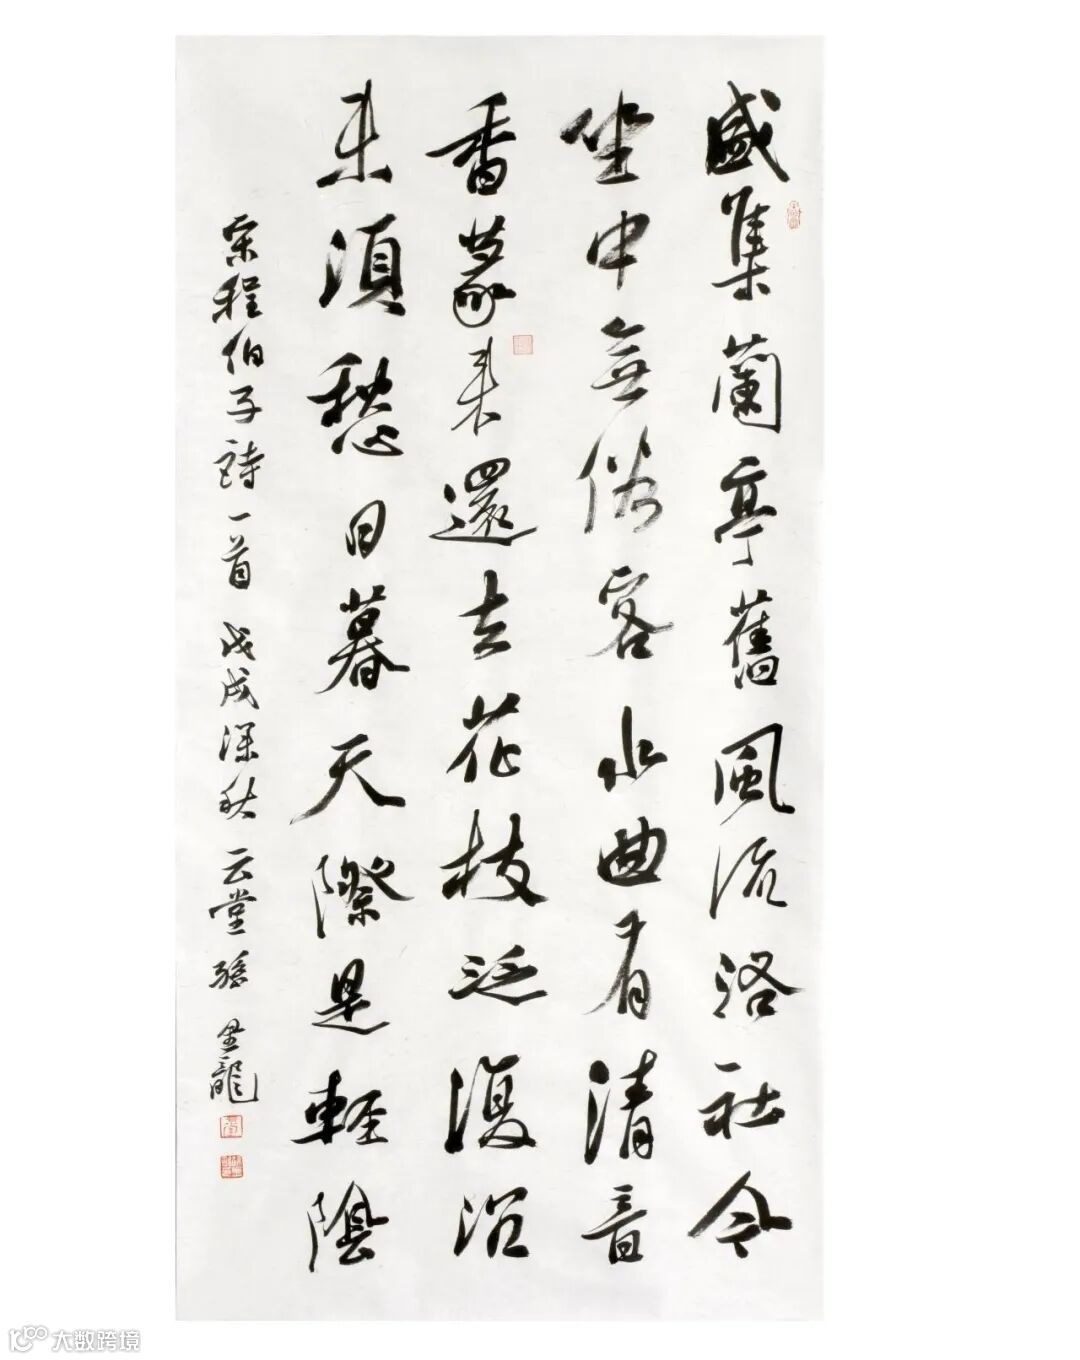 盛集蘭亭舊風流洛社今
坐中無俗客水曲有清音
香篆来還去花枝泛復沉
未須愁日暮天際是輕陰
宋程伯子詩一首 戊戌深秋 云堂 孫墨龍
大数跨境